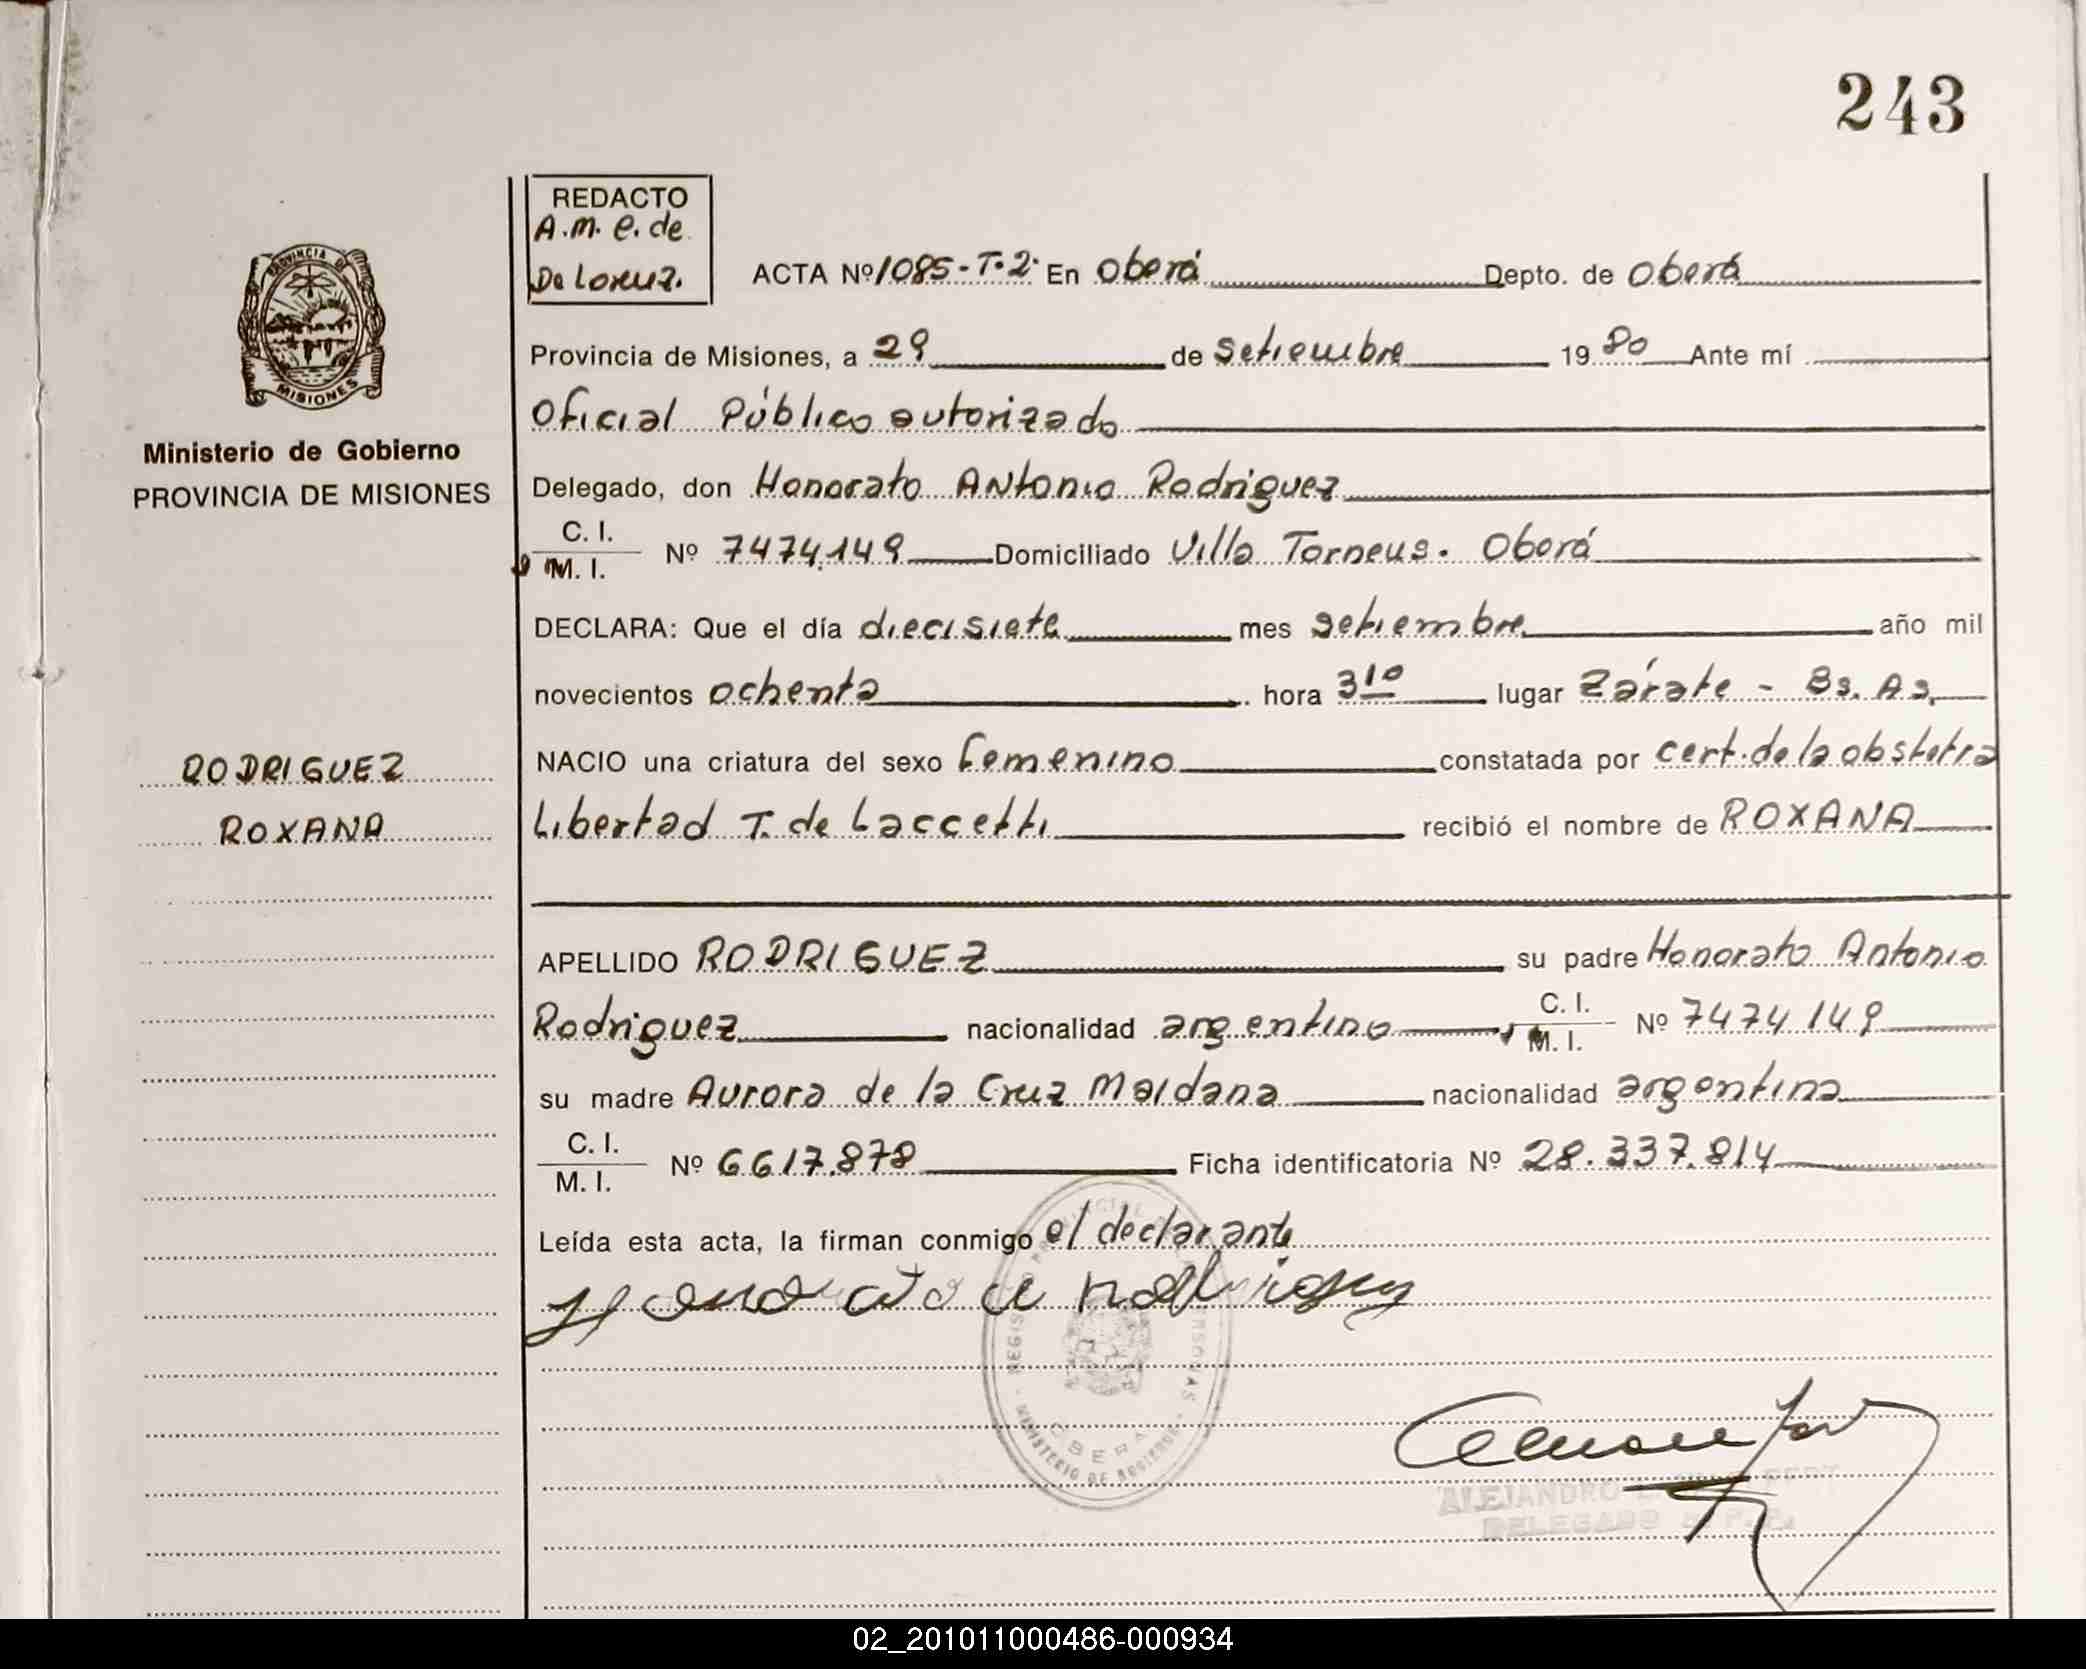 243
REDACTO
A.M.E. de
De Lorenz.
ACTA Nº 1085-T.2. En Oberá Depto. de Oberá
PROVINCIA DE
MISIONES
Provincia de Misiones, a 29 de Setiembre 1980 Ante mí
Oficial Público autorizado
Ministerio de Gobierno
PROVINCIA DE MISIONES
Delegado, don Honorato Antonio Rodriguez
C. I.
M. I. Nº 7474.149 Domiciliado Villa Torneus. Oberá
DECLARA: Que el día diecisiete mes setiembre año mil
novecientos ochenta hora 3 10 lugar Zárate - Bs. As.
RODRIGUEZ
ROXANA
NACIO una criatura del sexo femenino constatada por cert. de la obstetra
Libertad T. de Laccetti recibió el nombre de ROXANA
APELLIDO RODRIGUEZ su padre Honorato Antonio
Rodriguez nacionalidad argentino C. I. M. I. Nº 7474149
su madre Aurora de la Cruz Maidana nacionalidad argentina
C. I.
M. I. Nº 6617.878 Ficha identificatoria Nº 28.337.814
Leída esta acta, la firman conmigo el declarante
Honorato A Rodriguez
OBERA
MINISTERIO DE GOBIERNO
ALEJANDRO
DELEGADO
02_201011000486-000934